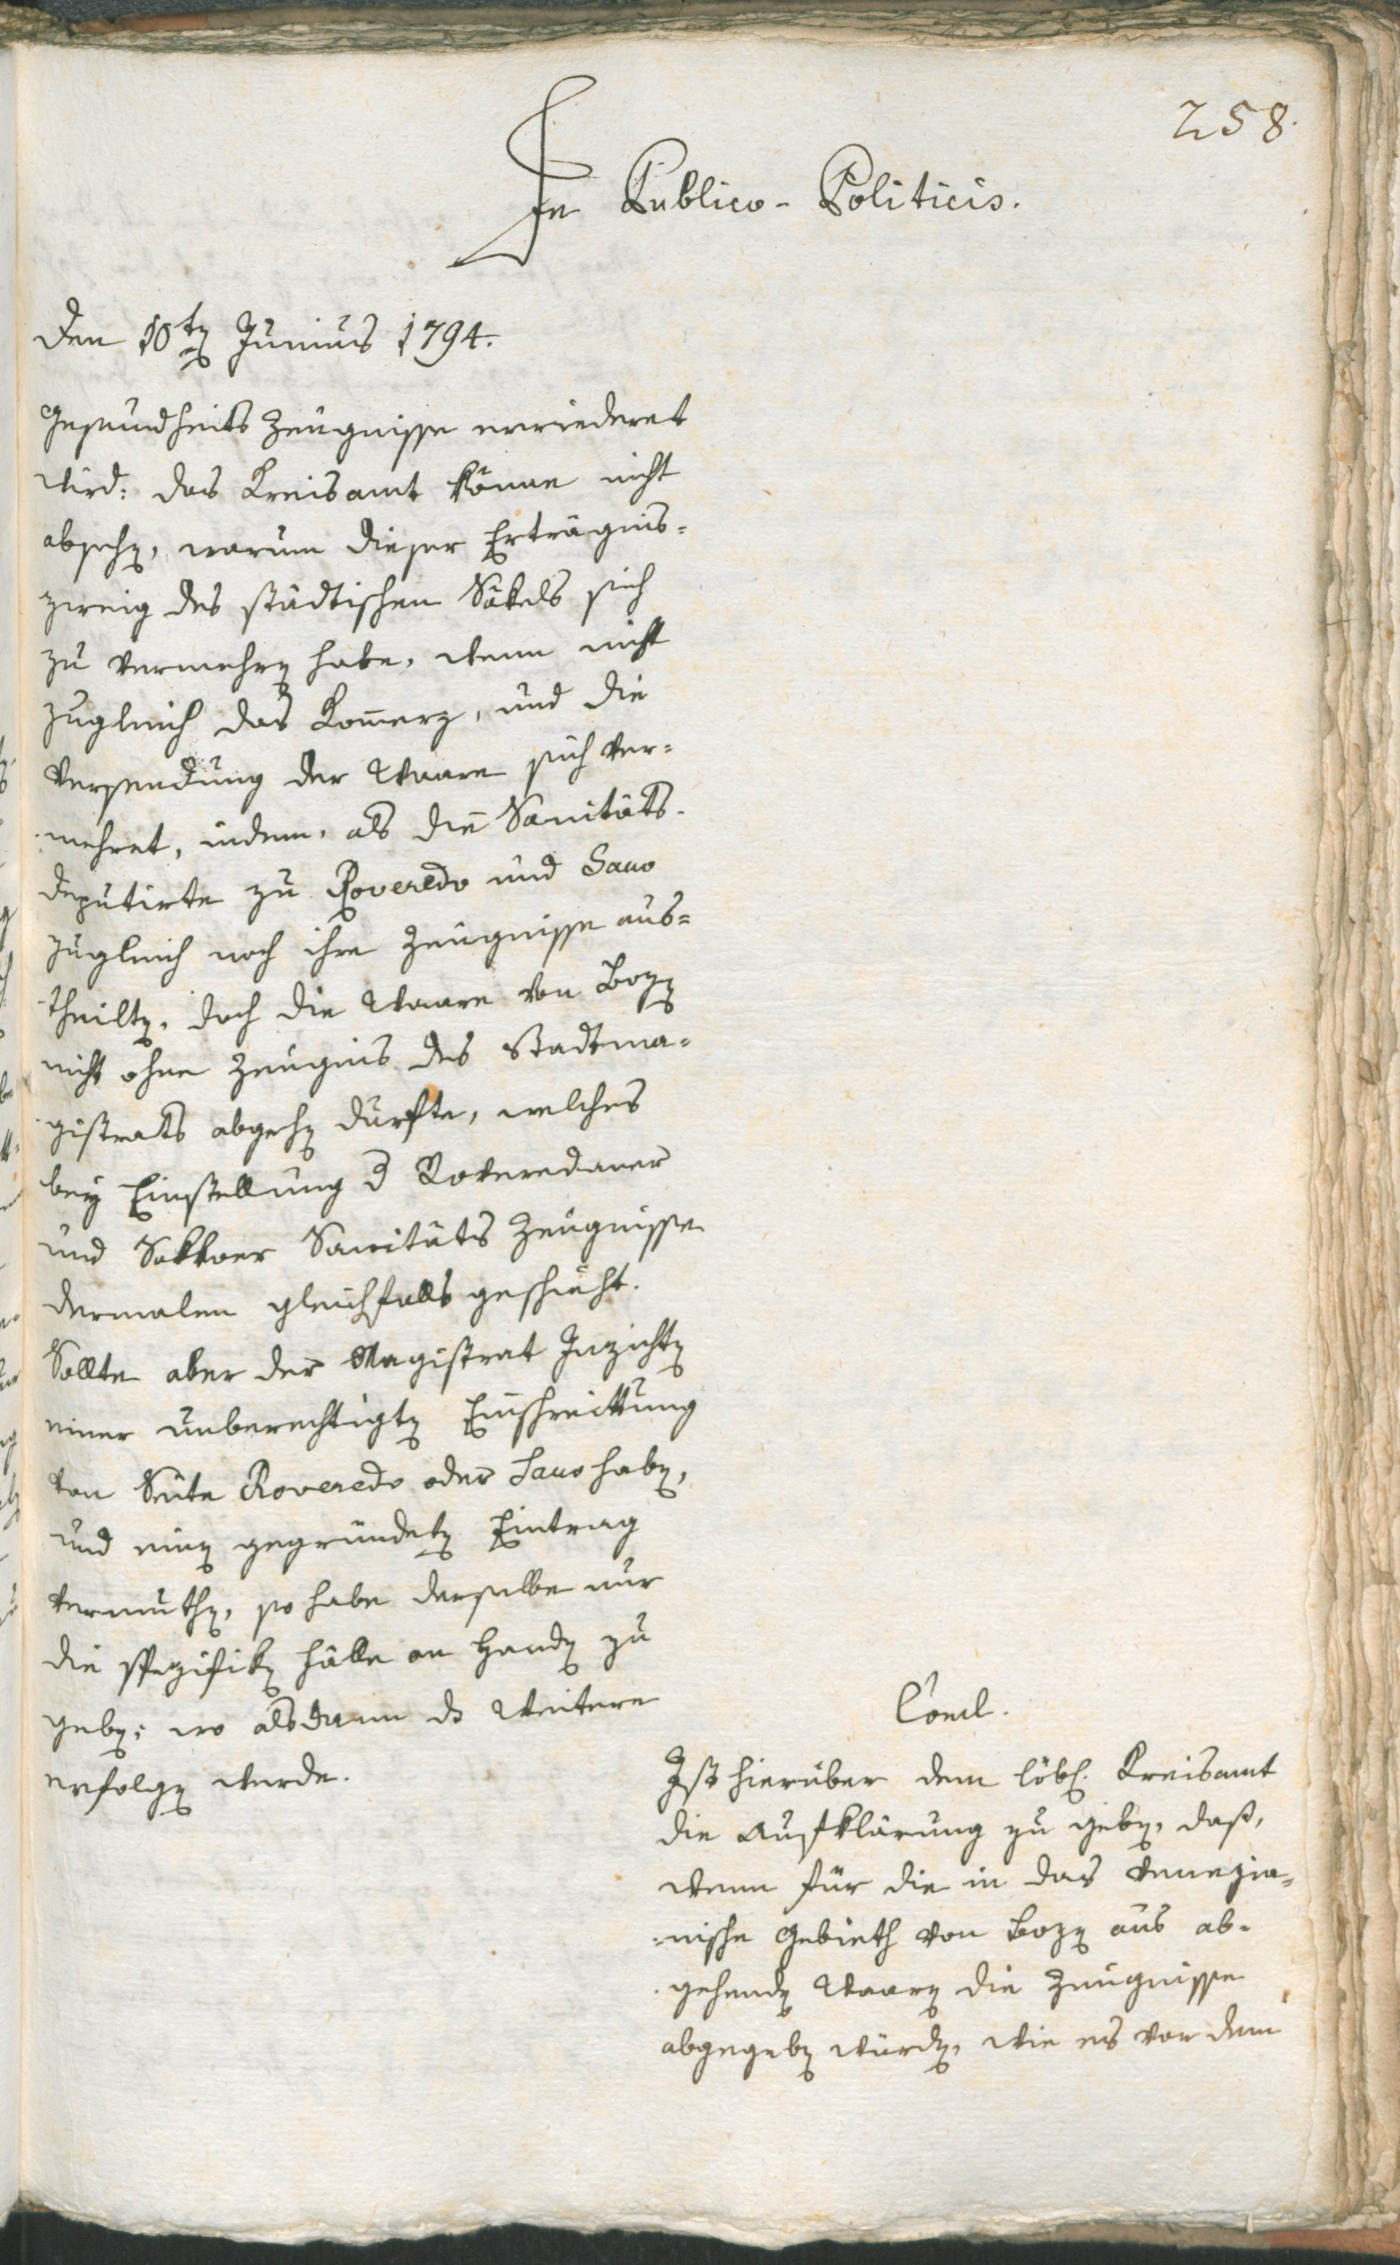 258.
In Publico-Politicis.
den 10ten Junius 1794.
Gesundheits Zeugnisse erwiederet
wird: das Kreisamt könne nicht
absehen, warum dieser Erträgnis-
zweig des städtischen Säkels sich
zu vermehren habe, wenn nicht
zugleich das Komerz, und die
Versendung der Waare sich ver-
mehret, indem, als die Sanitäts-
deputirte zu Roveredo und Saco
zugleich noch ihre Zeugnisse aus-
theilten, doch die Waare von Bozen
nicht ohne Zeugnis des Stadtma-
gistrats abgehen durfte, welches
bey Einstellung der Roveredaner
und Sakkoer Sanitäts Zeugnisse
dermalen gleichfalls geschieht.
Sollte aber der Magistrat Inzichten
einer unberechtigten Einschreittung
von Seite Roveredo oder Saco haben,
und einen gegründeten Eintrag
vermuthen, so habe derselbe nur
die spezifiken Fälle an Handen zu
geben; wo alsdann das Weitere
erfolgen werde.
Concl.
Ist hierüber dem löbl. Kreisamt
die Aufklärung zu geben, daß,
wenn für die in das venezia-
nische Gebieth von Bozen aus ab-
gehenden Waaren die Zeugnisse
abgegeben würden, wie es vor dem